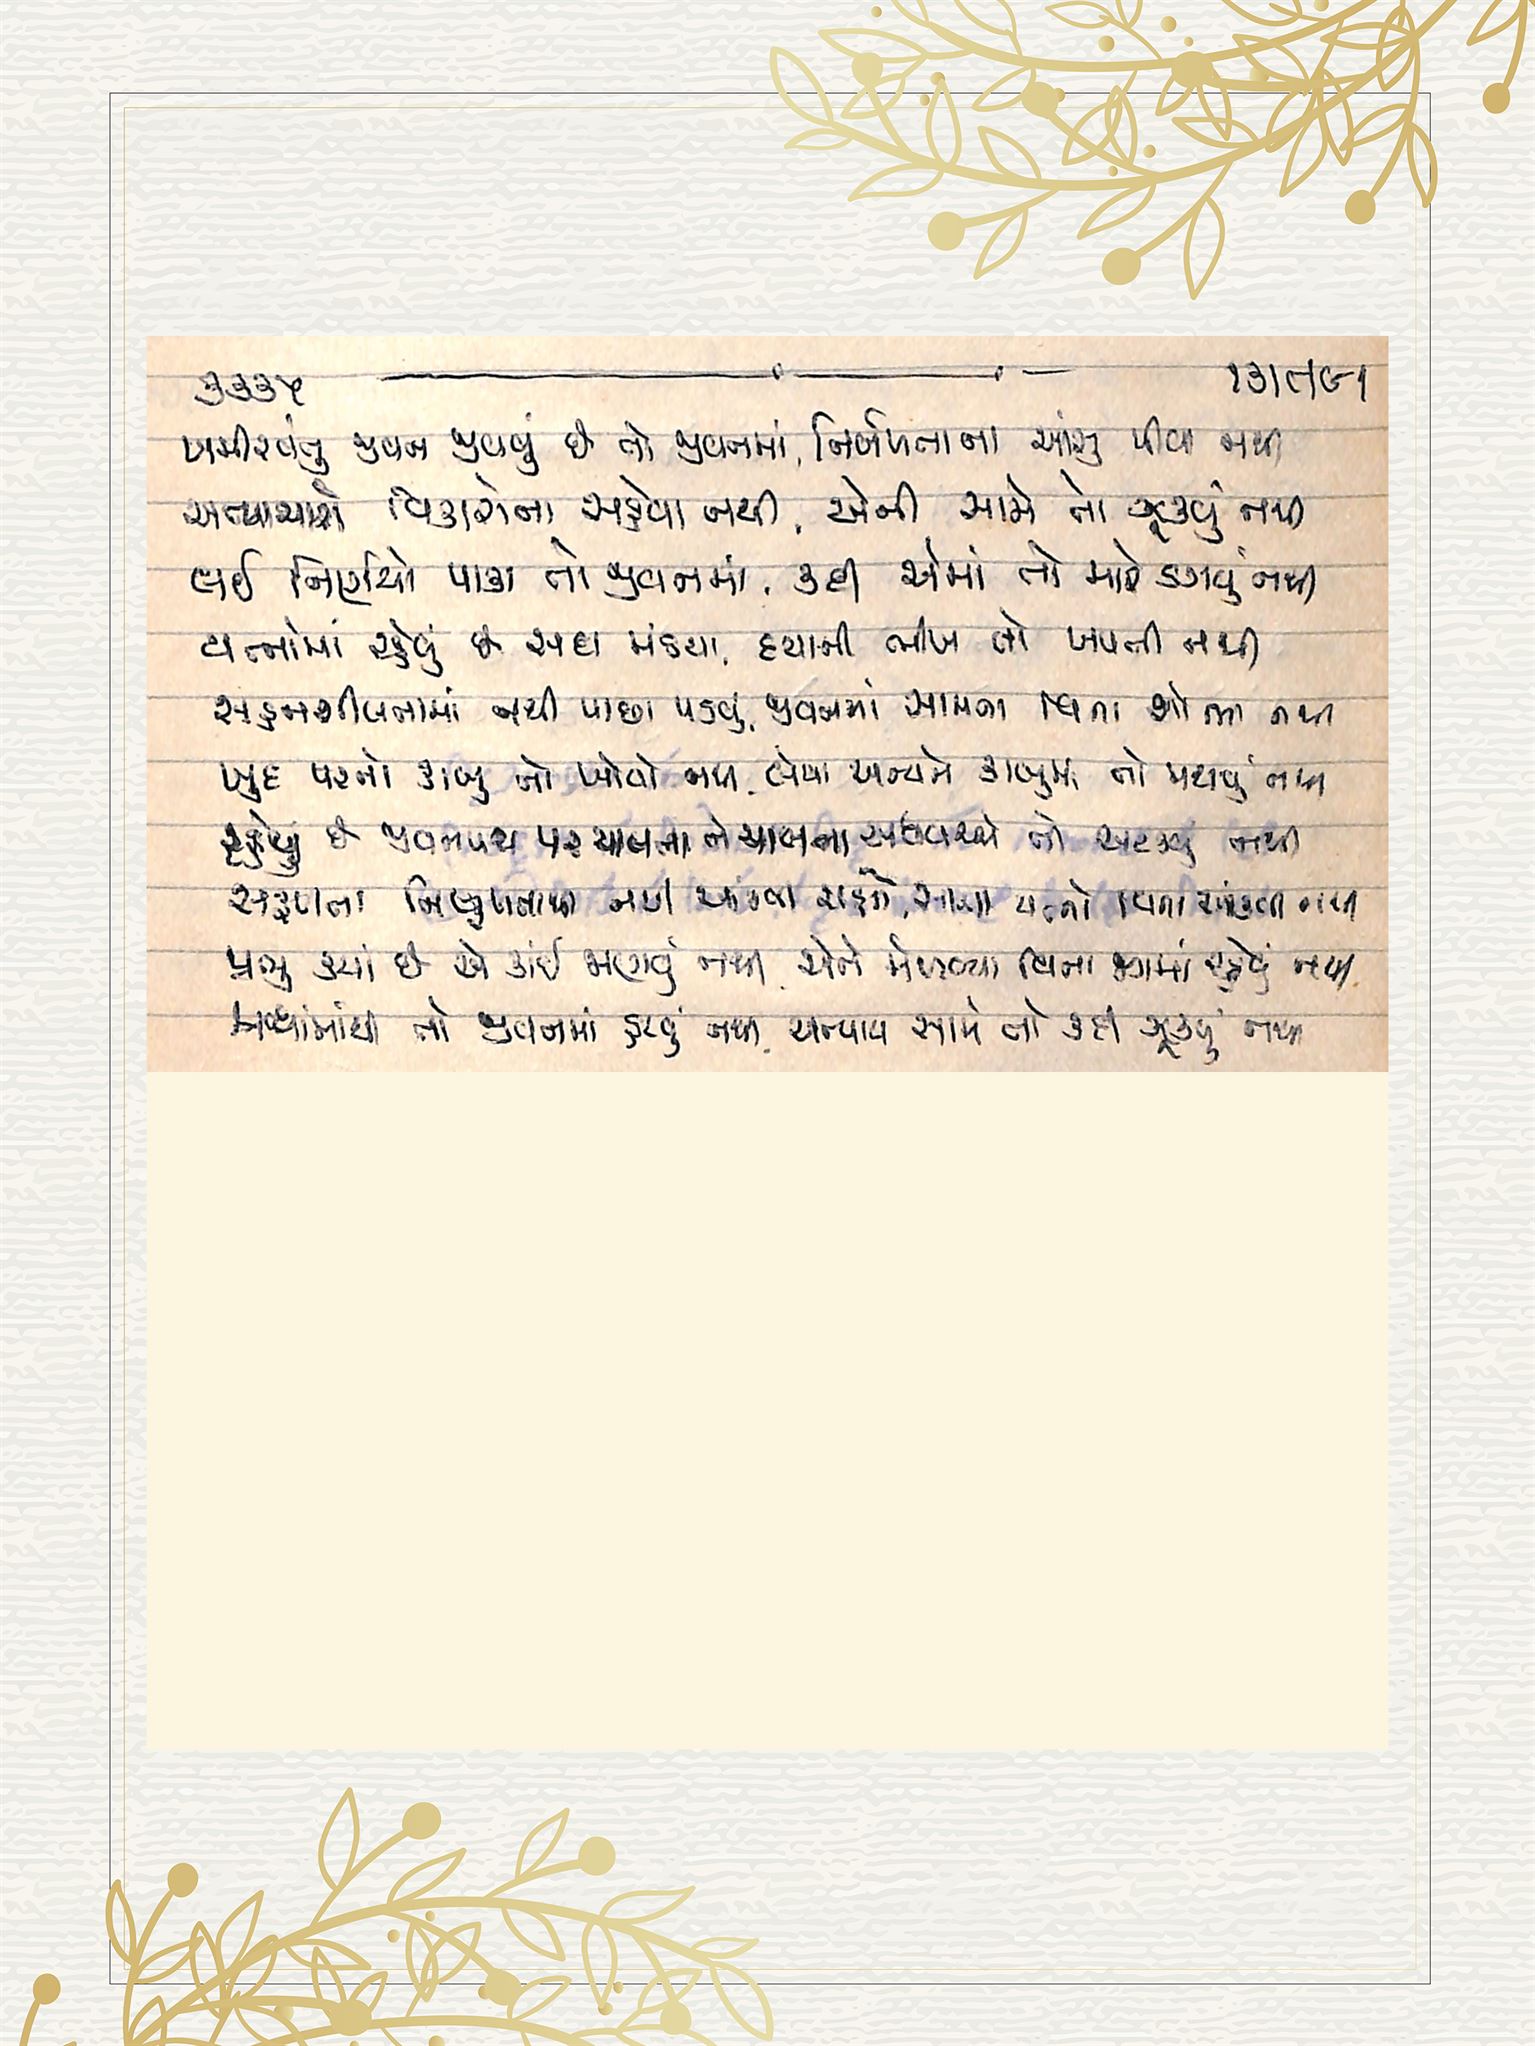 ૩૩૩૫ ૧૩|૮|૯૧
ખમીરવંતુ જીવન જીવવું છે તો જીવનમાં, નિર્બળતાના આંસુ પીવા નથી
અત્યાચારો વિકારોના સહેવા નથી, એની સામે તો ઝૂકવું નથી
લઈ નિર્ણયો પાકા તો જીવનમાં, કદી એમાં તો મારે ડગવું નથી
યત્નોમાં રહેવું છે સદા મંડયા, દયાની ભીખ તો ખપતી નથી
સહનશીલતામાં નથી પાછા પડવું, જીવનમાં સામના વિના શોભા નથી
ખુદ પરનો કાબુ તો ખોવો નથી, લેવા અન્યને કાબુમાં તો મથવું નથી
રહેવું છે જીવનપથ પર ચાલતા ને ચાલતા, અધવચ્ચે તો અટકવું નથી
સફળતા નિષ્ફળતાથી નથી આંકવા, સાચા યત્નો વિના આંકવા નથી
પ્રભુ ક્યાં છે એ કાંઈ જાણવું નથી, એને મેળવ્યા વિના જગમાં રહેવું નથી
બધાંમાંથી તો જીવનમાં હટવું નથી, અન્યાય સામે તો કદી ઝૂકવું નથી